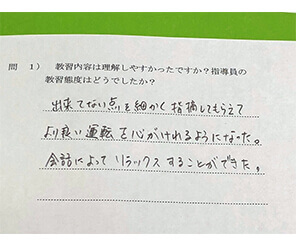 問 1） 教習内容は理解しやすかったですか？指導員の
教習態度はどうでしたか？
出来てない点を細かく指摘してもらえて
より良い運転を心がけれるようになった。
会話によってリラックスすることができた。